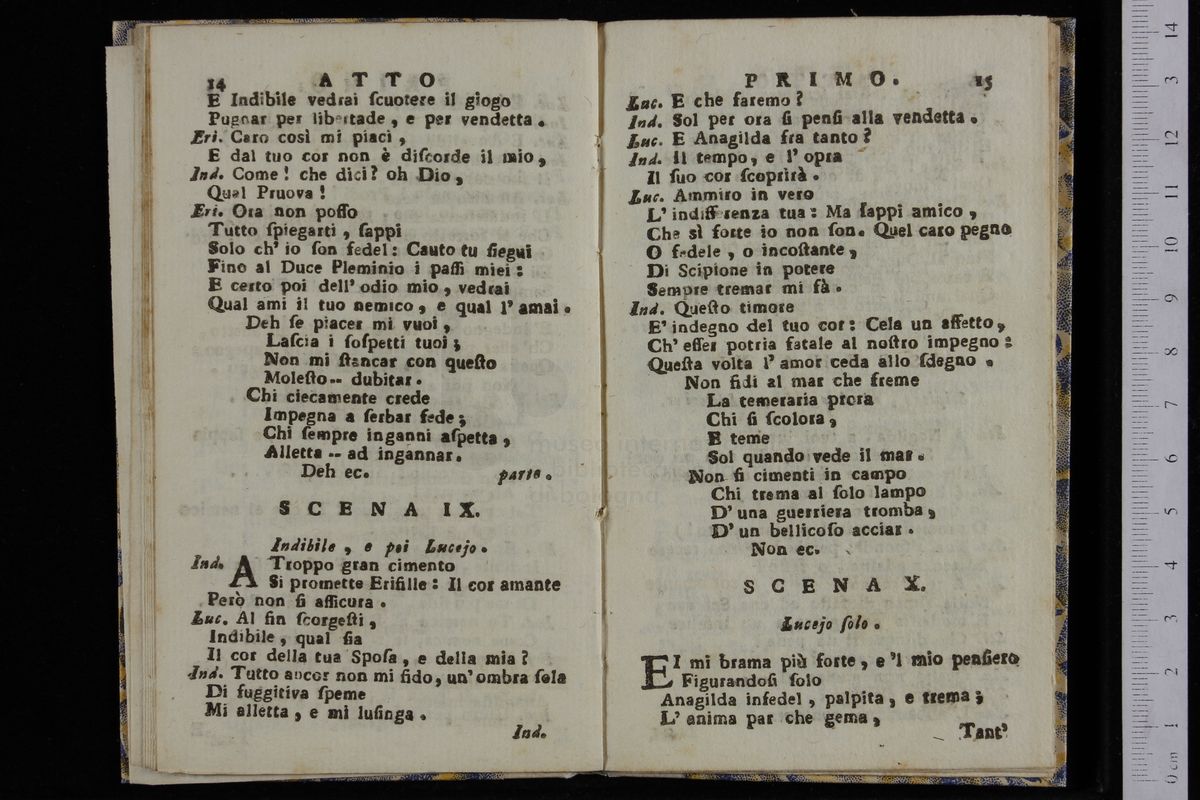 14 ATTO
E Indibile vedrai ſcuotere il giogo
Pugnar per libertade, e per vendetta.
Eri. Caro così mi piaci,
E dal tuo cor non è diſcorde il mio,
Ind. Come! che dici? oh Dio,
Qual Pruova!
Eri. Ora non poſſo
Tutto ſpiegarti, ſappi
Solo ch' io ſon fedel: Cauto tu ſiegui
Fino al Duce Pleminio i paſſi miei:
E certo poi dell' odio mio, vedrai
Qual ami il tuo nemico, e qual l' amai.
Deh ſe piacer mi vuoi,
Laſcia i ſoſpetti tuoi;
Non mi ſtancar con queſto
Moleſto -- dubitar.
Chi ciecamente crede
Impegna a ſerbar fede;
Chi ſempre inganni aſpetta,
Alletta -- ad ingannar.
Deh ec. parte.
SCENA IX.
Indibile, e poi Lucejo.
Ind. A Troppo gran cimento
Si promette Erifille: Il cor amante
Però non ſi aſſicura.
Luc. Al fin ſcorgeſti,
Indibile, qual ſia
Il cor della tua Spoſa, e della mia?
Ind. Tutto ancor non mi fido, un' ombra ſola
Di fuggitiva ſpeme
Mi alletta, e mi luſinga.
Ind.
PRIMO. 15
Luc. E che faremo?
Ind. Sol per ora ſi penſi alla vendetta.
Luc. E Anagilda fra tanto?
Ind. Il tempo, e l' opra
Il ſuo cor ſcoprirà.
Luc. Ammiro in vero
L' indifferenza tua: Ma ſappi amico,
Che sì forte io non ſon. Quel caro pegno
O fedele, o incoſtante,
Di Scipione in potere
Sempre tremar mi fà.
Ind. Queſto timore
E' indegno del tuo cor: Cela un affetto,
Ch' eſſer potria fatale al noſtro impegno:
Queſta volta l' amor ceda allo ſdegno.
Non fidi al mar che freme
La temeraria prora
Chi ſi ſcolora,
E teme
Sol quando vede il mar.
Non ſi cimenti in campo
Chi trema al ſolo lampo
D' una guerriera tromba,
D' un bellicoſo acciar.
Non ec.
SCENA X.
Lucejo ſolo.
EI mi brama più forte, e 'l mio penſiero
Figurandoſi ſolo
Anagilda infedel, palpita, e trema;
L' anima par che gema,
Tant'
0 cm 1 2 3 4 5 6 7 8 9 10 11 12 3 14